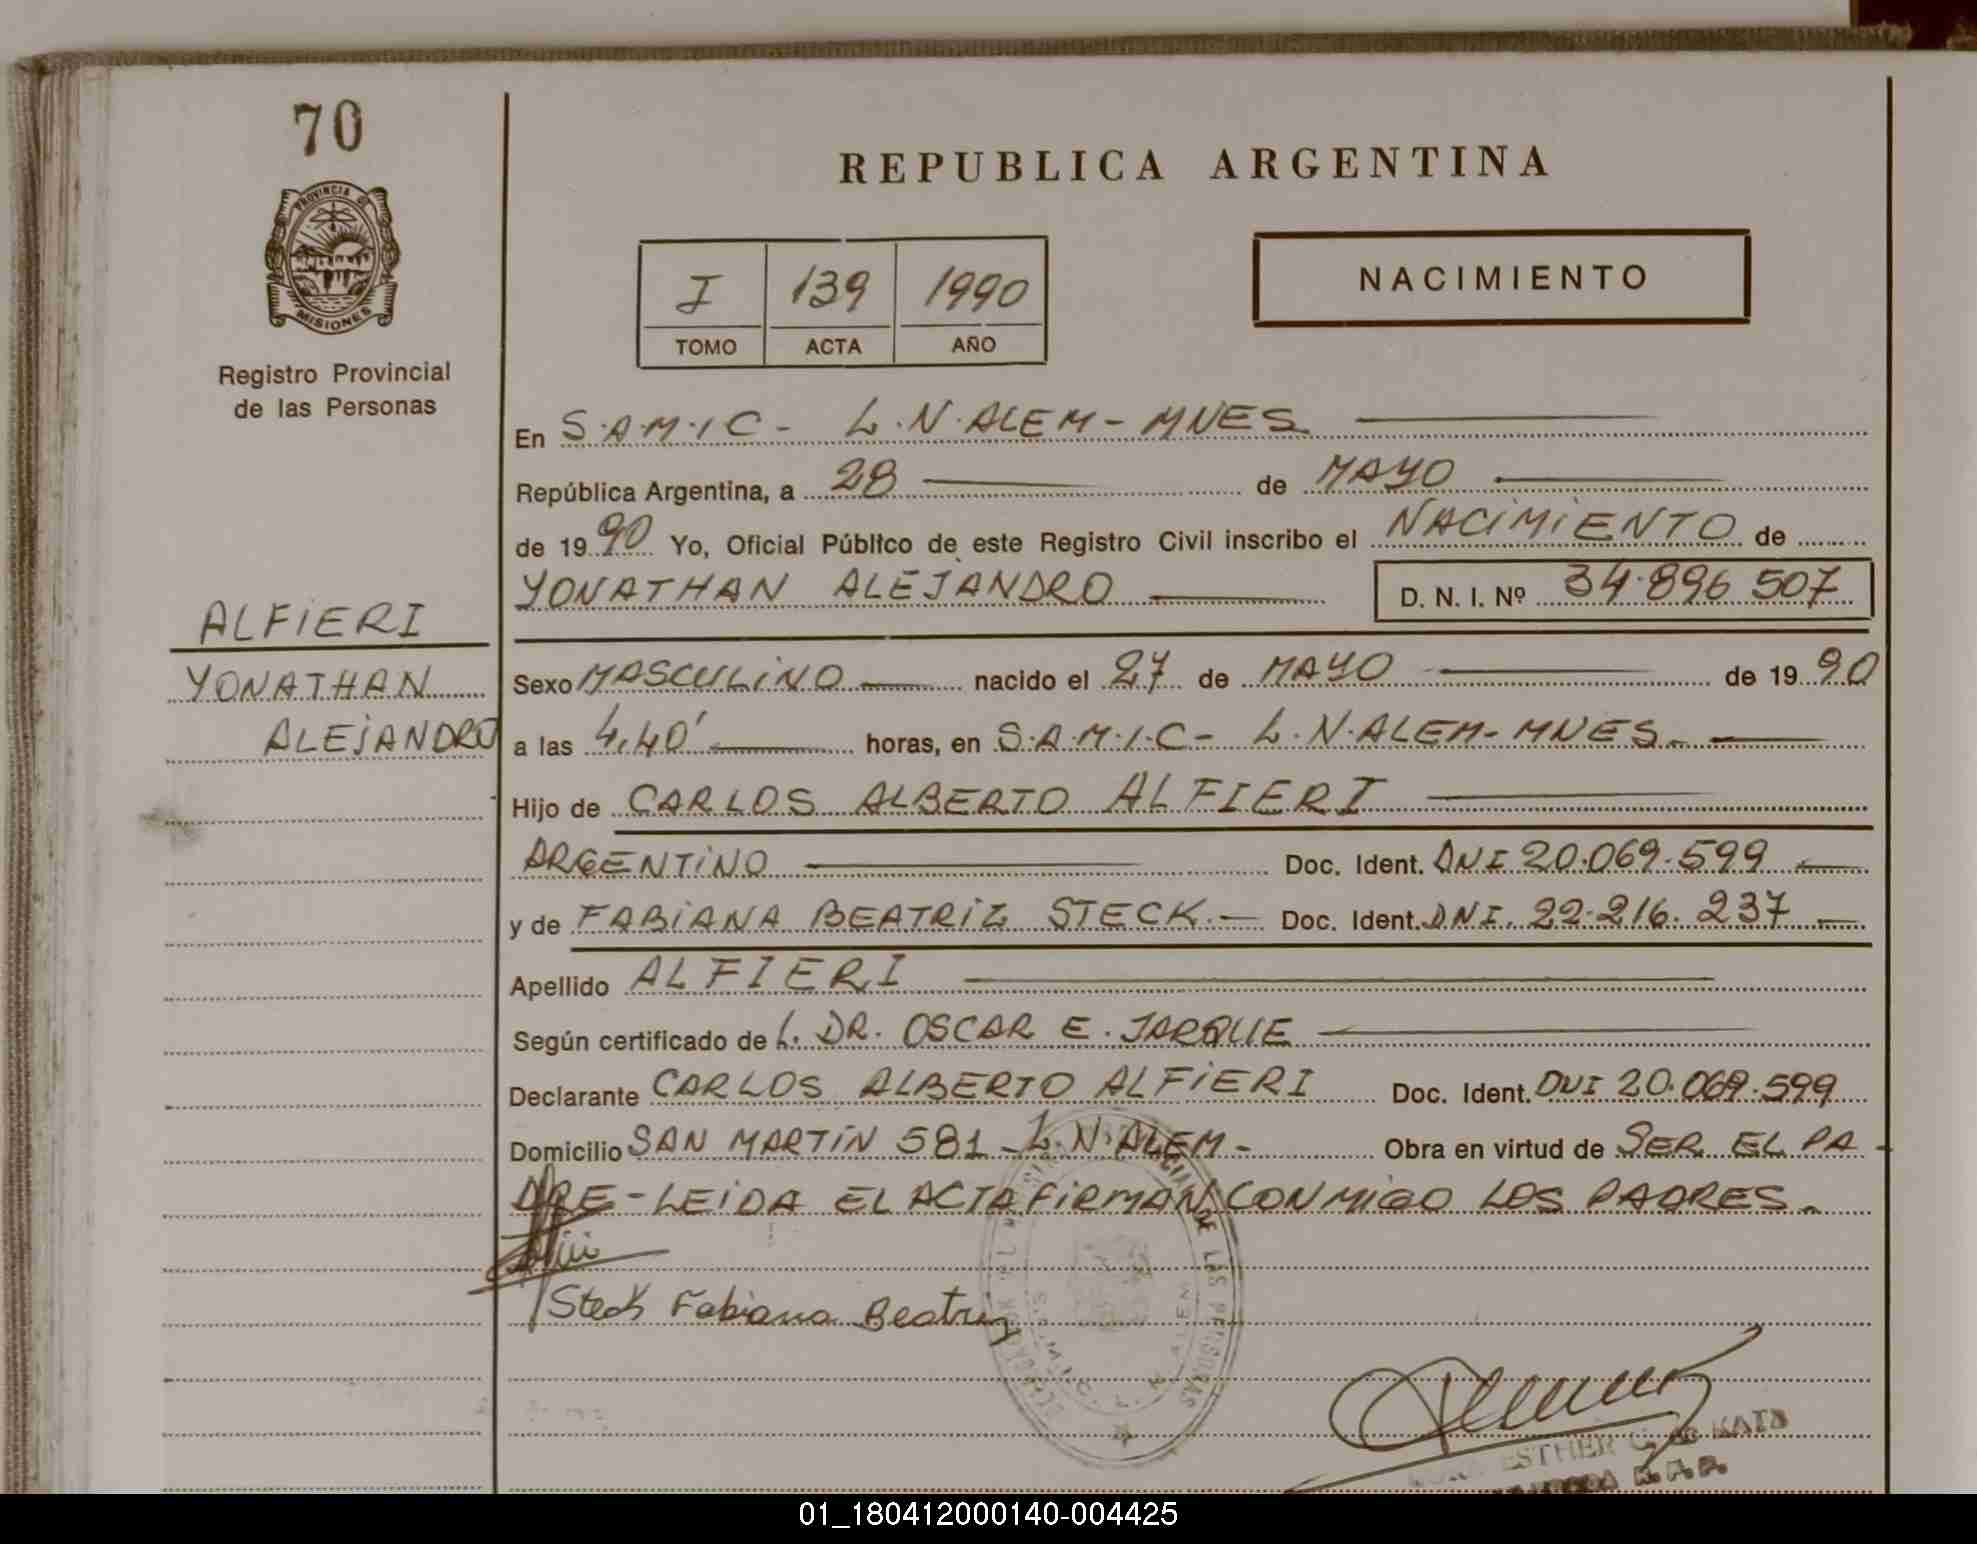 70
PROVINCIA DE
MISIONES
Registro Provincial
de las Personas
ALFIERI
YONATHAN
ALEJANDRO
REPUBLICA ARGENTINA
I 139 1990
TOMO ACTA AÑO
NACIMIENTO
En S.A.M.I.C - L.N.ALEM - MNES
República Argentina, a 28 de MAYO
de 1990 Yo, Oficial Público de este Registro Civil inscribo el NACIMIENTO de
YONATHAN ALEJANDRO D. N. I. Nº 34.896 507
Sexo MASCULINO nacido el 27 de MAYO de 1990
a las 4,40' horas, en S.A.M.I.C - L.N.ALEM - MNES.
Hijo de CARLOS ALBERTO ALFIERI
ARGENTINO Doc. Ident. DNI 20.069.599
y de FABIANA BEATRIZ STECK. Doc. Ident. DNI. 22.216.237
Apellido ALFIERI
Según certificado de L. DR. OSCAR E. JARQUE
Declarante CARLOS ALBERTO ALFIERI Doc. Ident. DNI 20.069.599
Domicilio SAN MARTIN 581 - L.N.ALEM - Obra en virtud de SER EL PA-
DRE - LEIDA EL ACTA FIRMAN CONMIGO LOS PADRES.
Steck Fabiana Beatriz
DE LAS PERSONAS
S.A.M.I.C. L. N. ALEM
ESTHER C. de KATZ
01_180412000140-004425